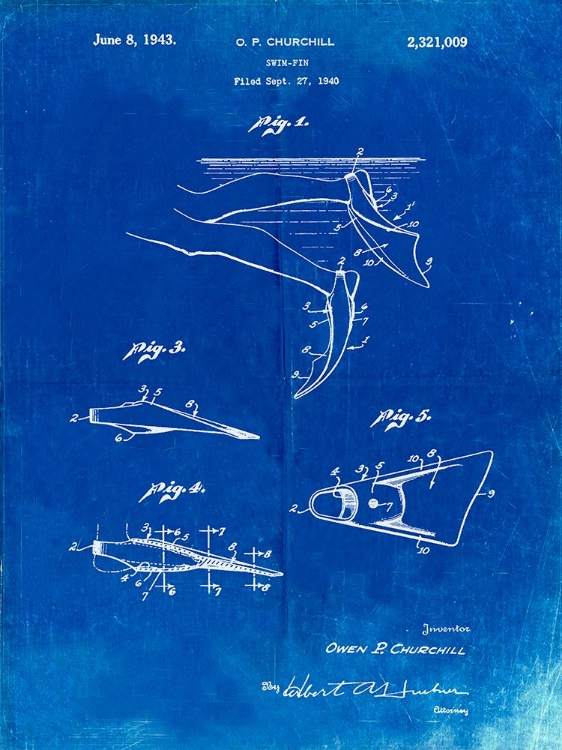 June 8, 1943. O. P. CHURCHILL 2,321,009
SWIM-FIN
Filed Sept. 27, 1940
Fig. 1.
2
6
3
1'
5
10
8
10
9
2
3
6
5
7
8
1
9
Fig. 3.
3 5
8
2
6
Fig. 5.
10 8
3
5
4
2
7
9
10
Fig. 4.
3 6 5 7
8
2
8
4 6
7 6 7 8
Inventor
OWEN P. CHURCHILL
By
Attorney